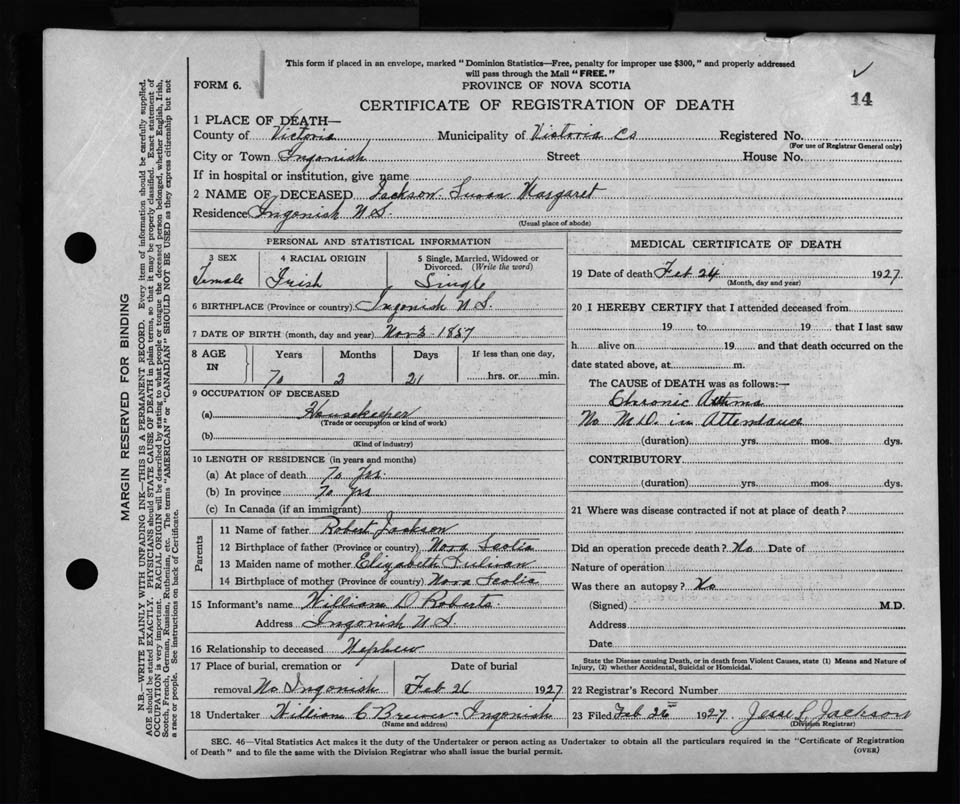 This form if placed in an envelope, marked "Dominion Statistics—Free, penalty for improper use $300," and properly addressed
will pass through the Mail "FREE."
FORM 6.
PROVINCE OF NOVA SCOTIA
14
CERTIFICATE OF REGISTRATION OF DEATH
1 PLACE OF DEATH—
County of Victoria Municipality of Victoria Co Registered No.
(For use of Registrar General only)
City or Town Ingonish Street House No.
If in hospital or institution, give name
2 NAME OF DECEASED Jackson Susan Margaret
Residence Ingonish N.S.
(Usual place of abode)
PERSONAL AND STATISTICAL INFORMATION
3 SEX 4 RACIAL ORIGIN 5 Single, Married, Widowed or
Divorced. (Write the word)
Female Irish Single
6 BIRTHPLACE (Province or country) Ingonish N.S.
7 DATE OF BIRTH (month, day and year) Nov 3 1857
8 AGE IN Years Months Days If less than one day,
70 2 21 hrs. or min.
9 OCCUPATION OF DECEASED
(a) Housekeeper
(Trade or occupation or kind of work)
(b)
(Kind of industry)
10 LENGTH OF RESIDENCE (in years and months)
(a) At place of death 70 yrs.
(b) In province 70 yrs
(c) In Canada (if an immigrant)
Parents
11 Name of father Robert Jackson
12 Birthplace of father (Province or country) Nova Scotia
13 Maiden name of mother Elizabeth Sulivan
14 Birthplace of mother (Province or country) Nova Scotia
15 Informant's name William D Roberts
Address Ingonish N.S.
16 Relationship to deceased Nephew
17 Place of burial, cremation or Date of burial
removal No Ingonish Feb 26 1927
18 Undertaker William C Brewer Ingonish
(Name and address)
MEDICAL CERTIFICATE OF DEATH
19 Date of death Feb 24 1927
(Month, day and year)
20 I HEREBY CERTIFY that I attended deceased from
19 to 19 that I last saw
h alive on 19 and that death occurred on the
date stated above, at m.
The CAUSE of DEATH was as follows:—
Chronic Asthma
No M.D. in Attendance
(duration) yrs. mos. dys.
CONTRIBUTORY
(duration) yrs. mos. dys.
21 Where was disease contracted if not at place of death?
Did an operation precede death? No Date of
Nature of operation
Was there an autopsy? No
(Signed) M.D.
Address
Date
State the Disease causing Death, or in death from Violent Causes, state (1) Means and Nature of
Injury, (2) whether Accidental, Suicidal or Homicidal.
22 Registrar's Record Number
23 Filed Feb 26th 1927 Jesse L Jackson
(Division Registrar)
SEC. 46—Vital Statistics Act makes it the duty of the Undertaker or person acting as Undertaker to obtain all the particulars required in the "Certificate of Registration
of Death" and to file the same with the Division Registrar who shall issue the burial permit.
(OVER)
MARGIN RESERVED FOR BINDING
N.B.—WRITE PLAINLY WITH UNFADING INK—THIS IS A PERMANENT RECORD. Every item of information should be carefully supplied.
AGE should be stated EXACTLY. PHYSICIANS should STATE CAUSE OF DEATH in plain terms, so that it may be properly classified. Exact statement of
OCCUPATION is very important. RACIAL ORIGIN will be described by stating to what people or tongue the deceased person belonged, whether English, Irish,
Scotch, French, German, Russian, Ruthenian, etc. The terms "AMERICAN" or "CANADIAN" SHOULD NOT BE USED as they express citizenship but not
a race or people. See instructions on back of Certificate.